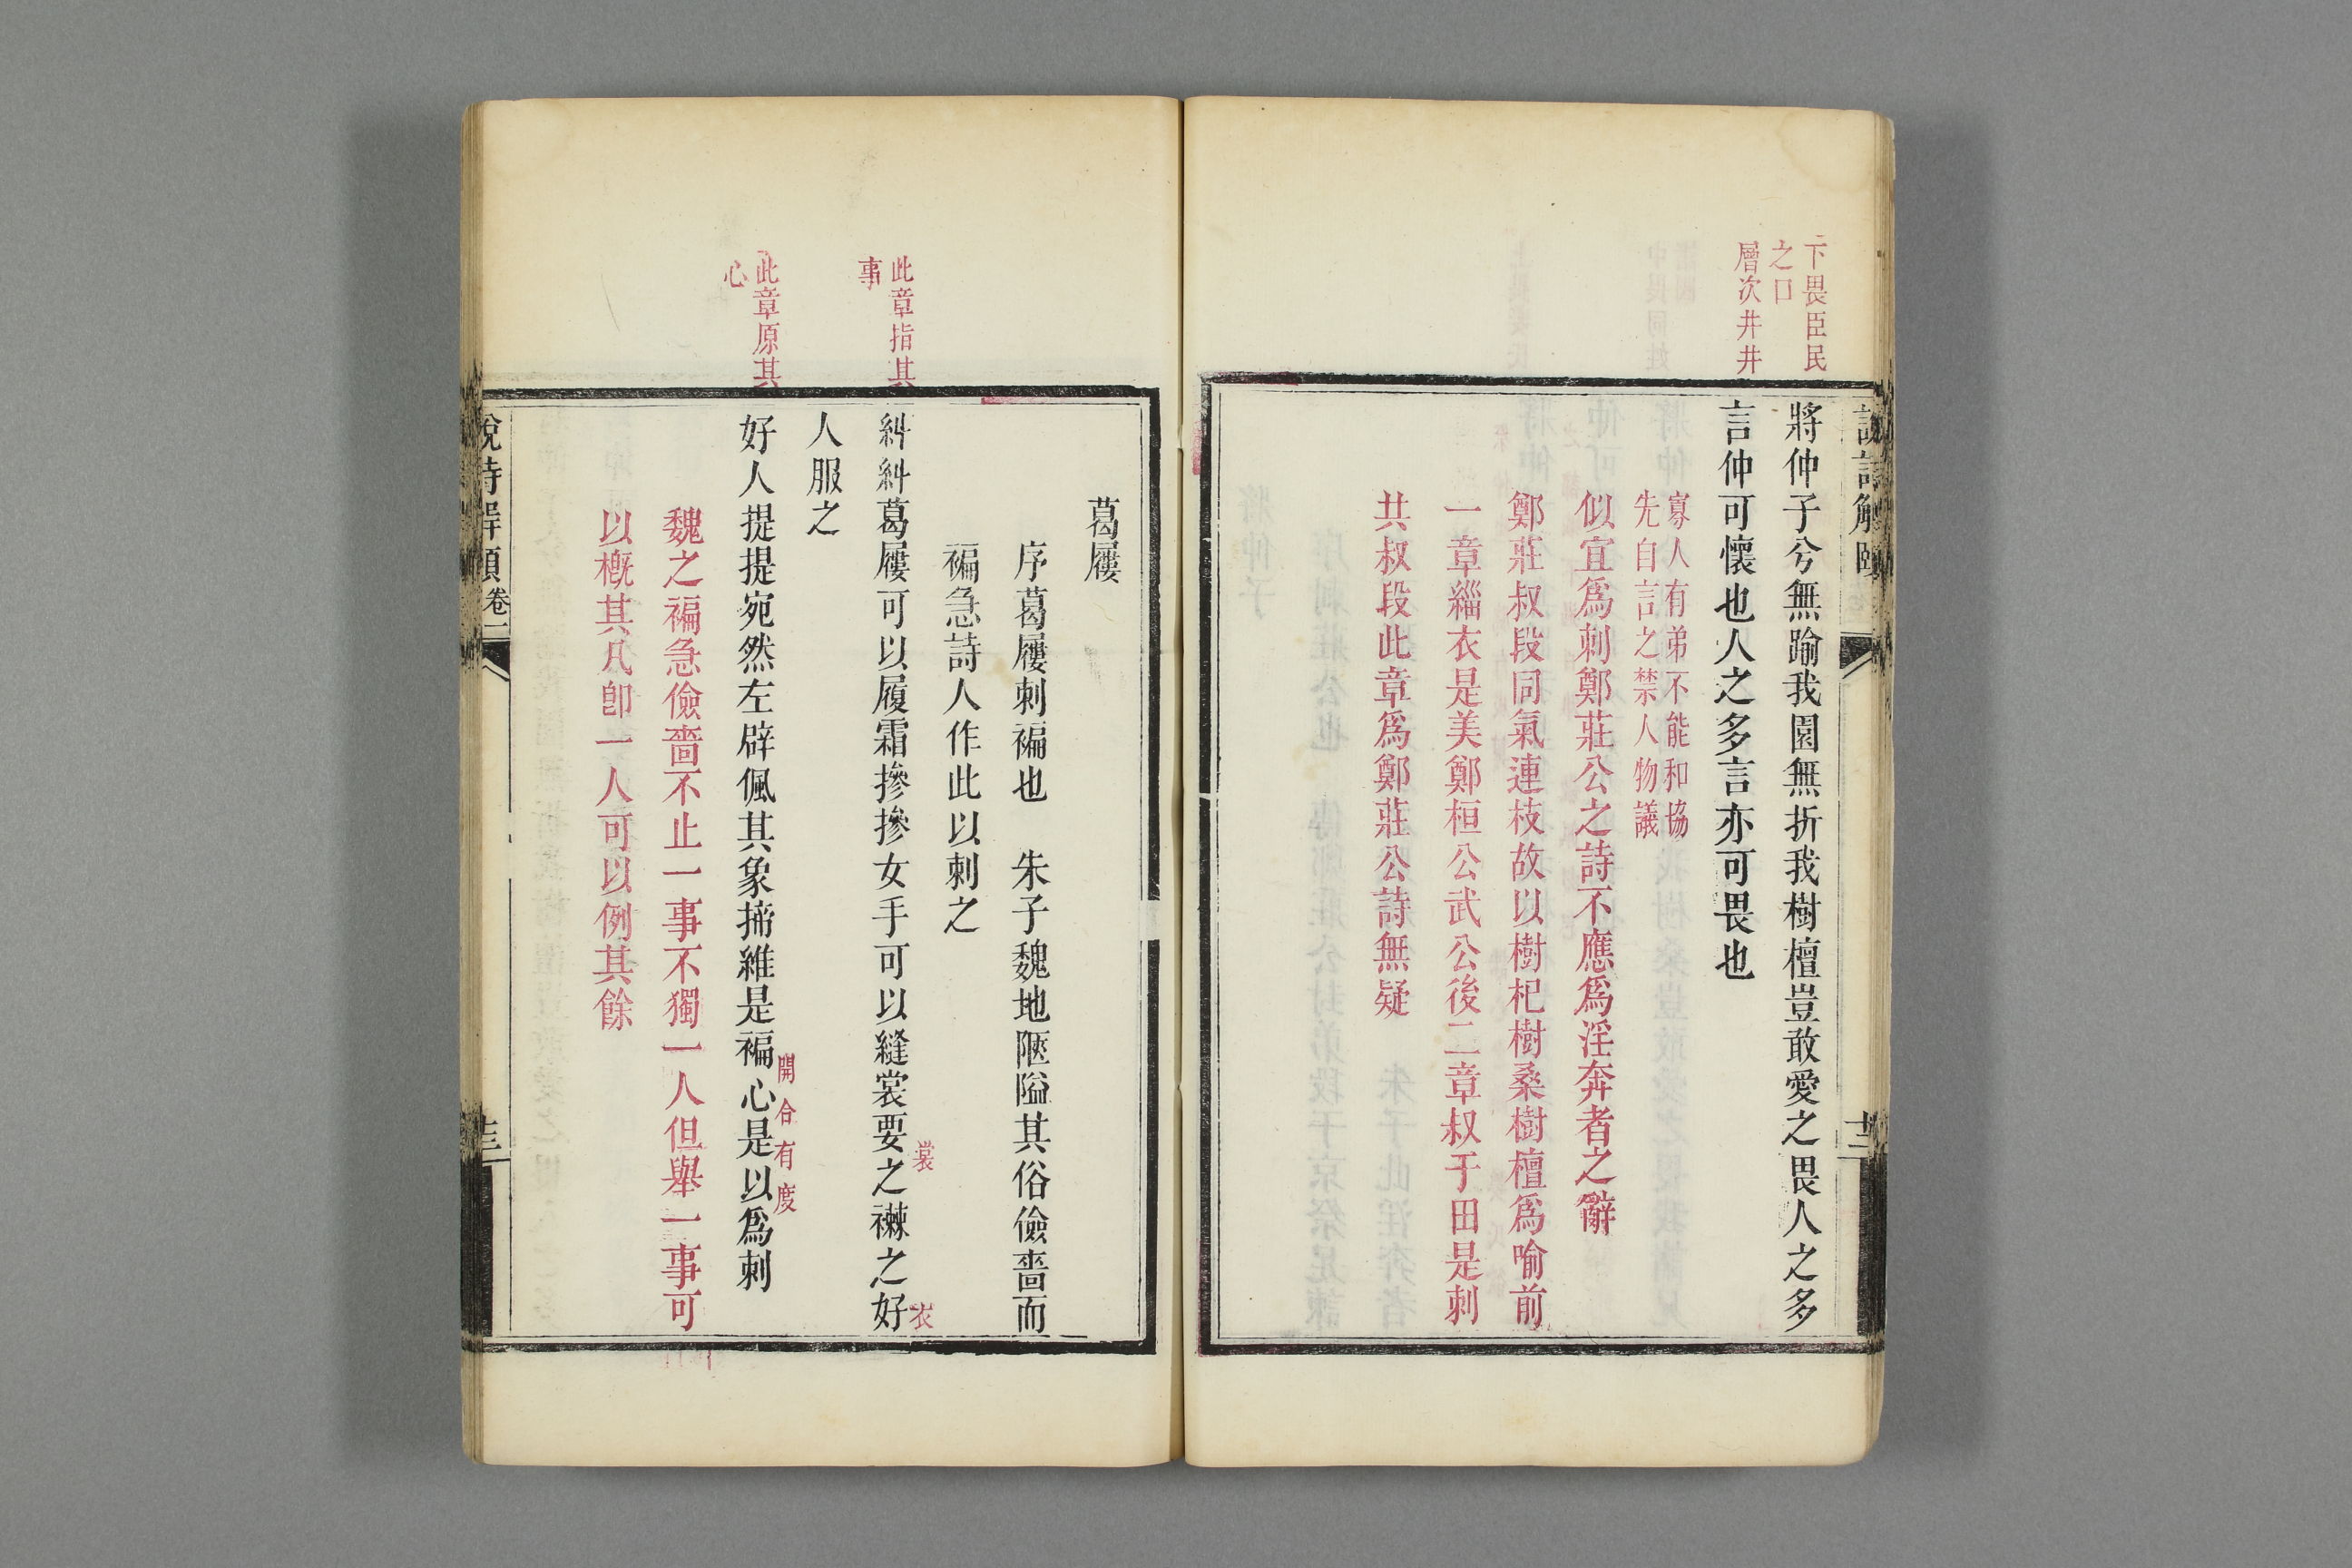 下畏臣民
之口
層次井井
將仲子兮無踰我園無折我樹檀豈敢愛之畏人之多
言仲可懷也人之多言亦可畏也
寡人有弟不能和協
先自言之禁人物議
似宜爲刺鄭莊公之詩不應爲淫奔者之辭
鄭莊叔段同氣連枝故以樹杞樹桑樹檀爲喻前
一章緇衣是美鄭桓公武公後二章叔于田是刺
共叔段此章爲鄭莊公詩無疑
葛屨
序葛屨刺褊也　朱子魏地陿隘其俗儉嗇而
褊急詩人作此以刺之
此章指其
事
糾糾葛屨可以履霜摻摻女手可以縫裳要之襋之好
裳
衣
人服之
此章原其
心
好人提提宛然左辟佩其象揥維是褊心是以爲刺
開合有度
魏之褊急儉嗇不止一事不獨一人但舉一事可
以槪其凡卽一人可以例其餘
說詩解頤 卷一